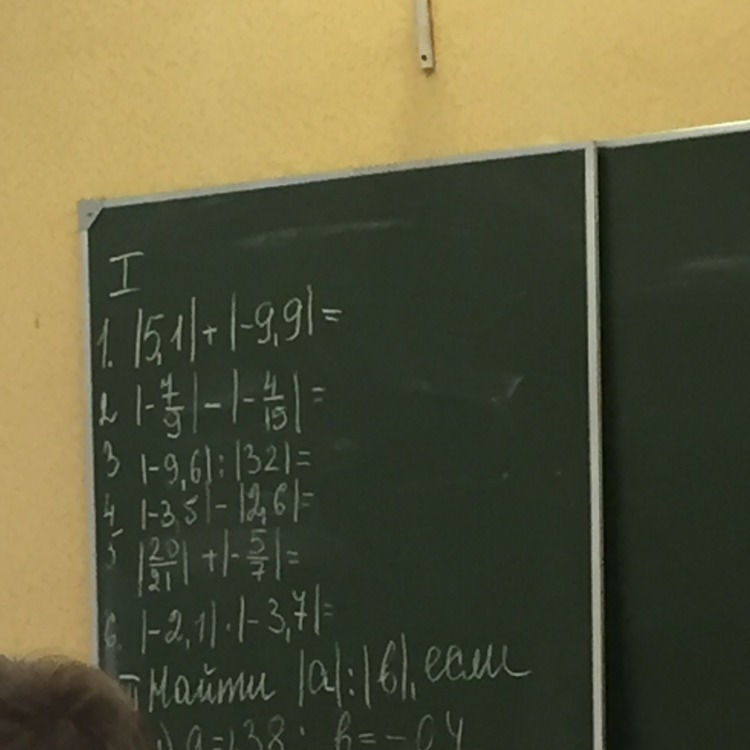 I
1. |5,1|+|-9,9|=
2 |-7/9|-|-4/15|=
3 |-9,6|:|32|=
4 |-3,5|-|2,6|=
5 |20/21|+|-5/7|=
6. |-2,1|·|-3,7|=
II Найти |a|:|b|, если